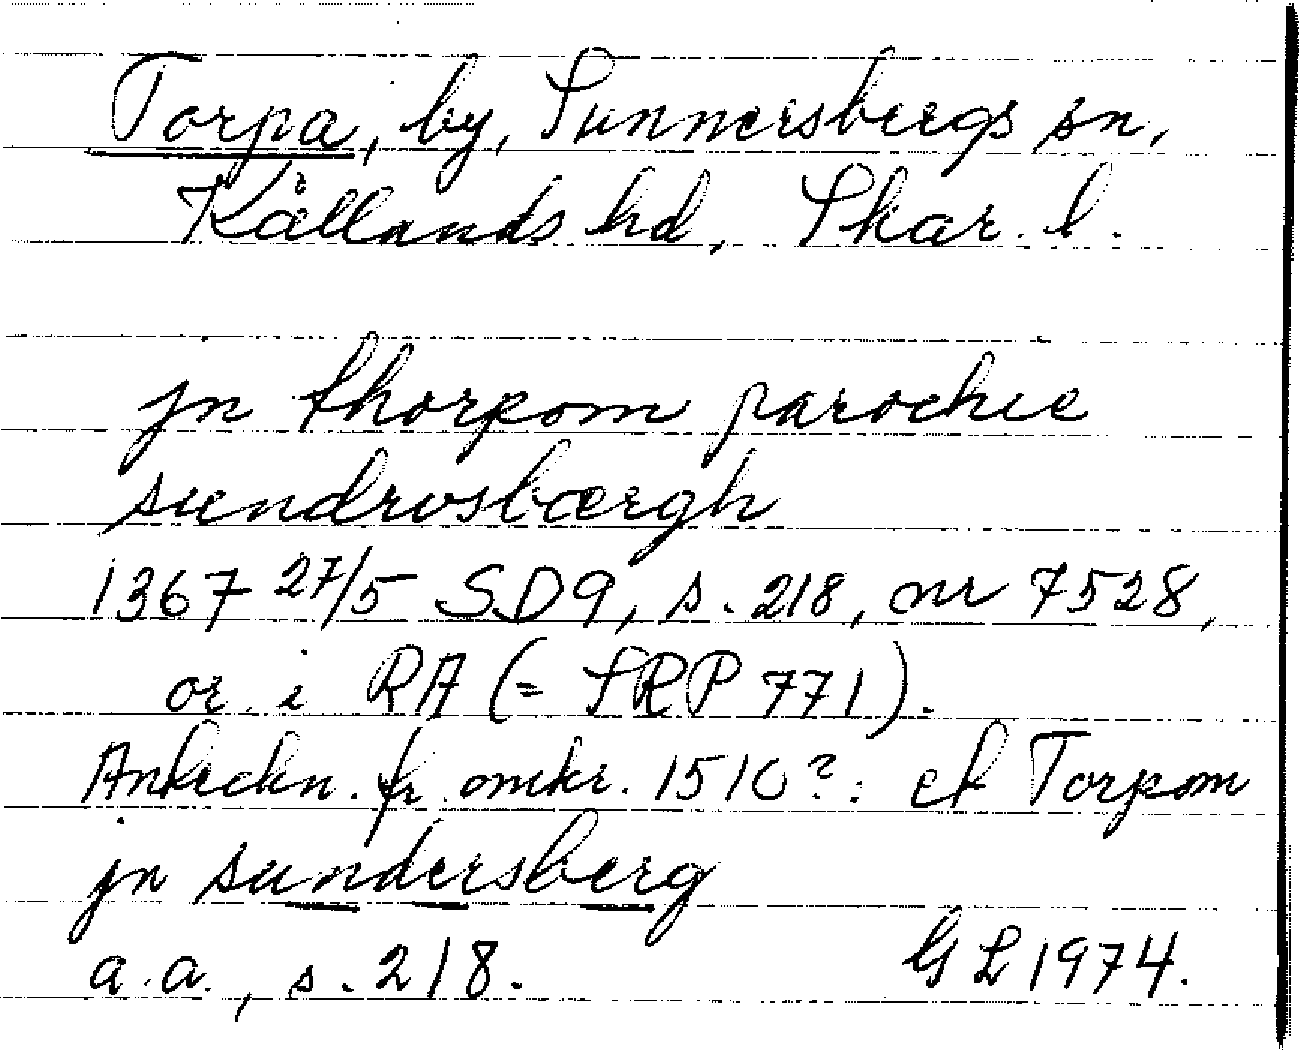 Torpa, by, Sunnersbergs sn,
Kållands hd, Skar. l.
jn thorpom parochie
sundrosbærgh
1367 27/5 SD9, s. 218, nr 7528,
or. i RA (= SRP 771).
Anteckn. fr. omkr. 1510?: af Torpom
jn sundersberg
a.a., s. 218. GL 1974.